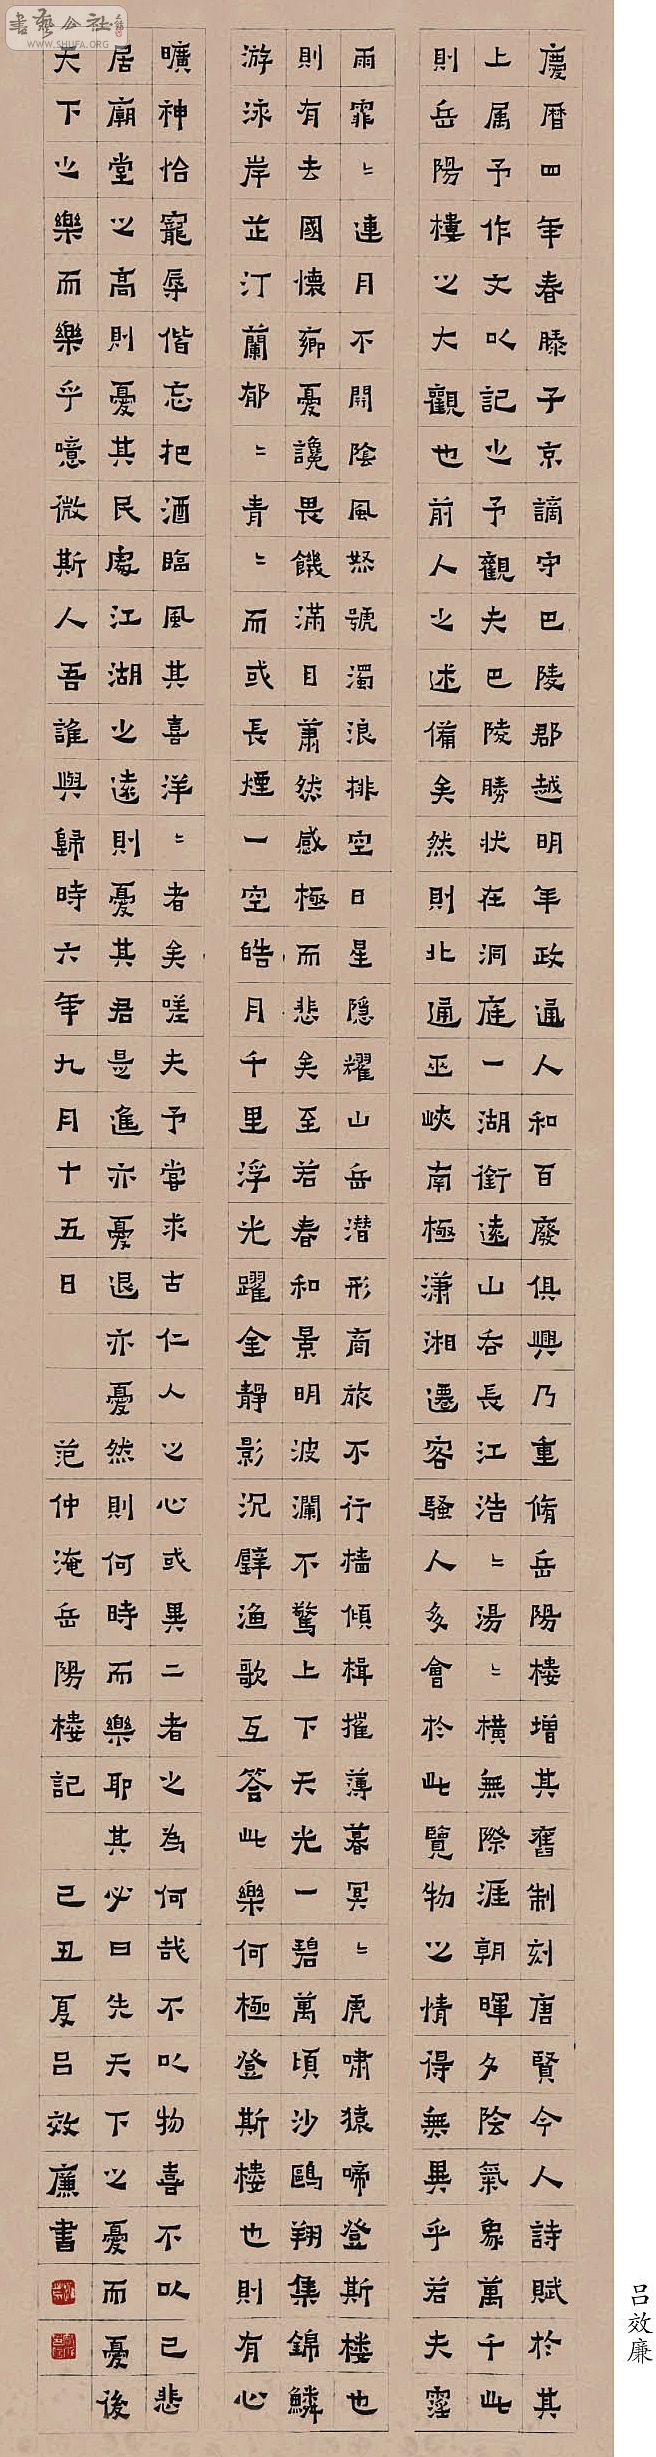 慶曆四年春滕子京謫守巴陵郡越明年政通人和百廢俱興乃重脩岳陽楼增其舊制刻唐賢今人詩賦於其
上属予作文以記之予觀夫巴陵勝状在洞庭一湖銜遠山吞長江浩〻湯〻橫無際涯朝暉夕陰氣象萬千此
則岳陽樓之大觀也前人之述備矣然則北通巫峽南極瀟湘遷客騷人多會於此覽物之情得無異乎若夫霪
雨霏〻連月不開陰風怒號濁浪排空日星隱耀山岳潜形商旅不行檣傾楫摧薄暮冥〻虎嘯猿啼登斯楼也
則有去國懷鄉憂讒畏饑滿目蕭然感極而悲矣至若春和景明波瀾不驚上下天光一碧萬頃沙鷗翔集錦鱗
游泳岸芷汀蘭郁〻青〻而或長煙一空皓月千里浮光躍金靜影沉璧漁歌互答此樂何極登斯樓也則有心
曠神怡寵辱偕忘把酒臨風其喜洋〻者矣嗟夫予嘗求古仁人之心或異二者之為何哉不以物喜不以己悲
居廟堂之高則憂其民處江湖之遠則憂其君是進亦憂退亦憂然則何時而樂耶其必曰先天下之憂而憂後
天下之樂而樂乎噫微斯人吾誰與歸時六年九月十五日 范仲淹岳陽楼記 己丑夏吕效廉書
吕效廉
書藝公社
WWW.SHUFA.ORG